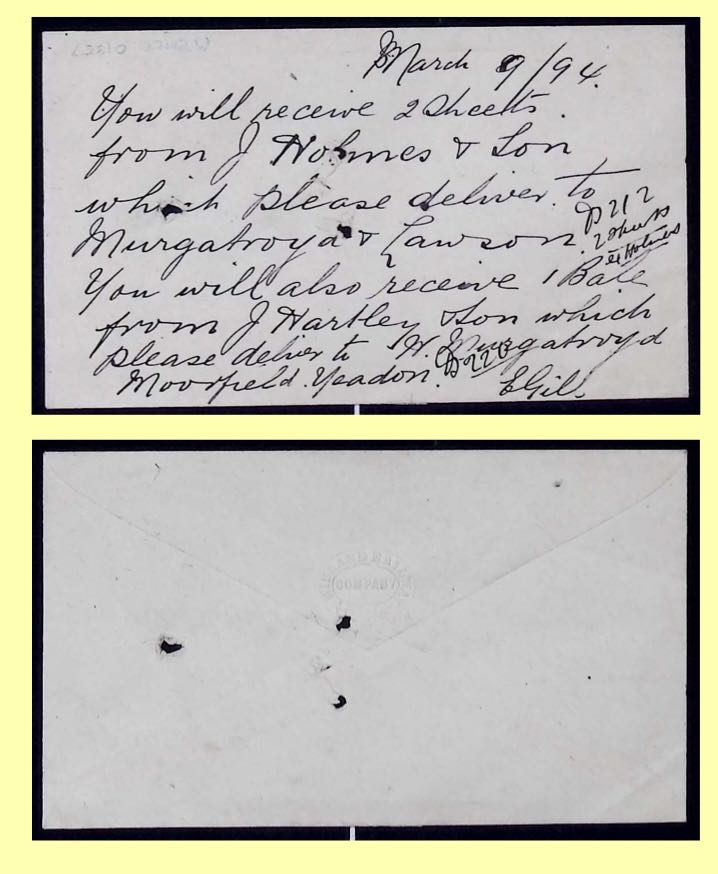 March 9/94.
You will receive 2 Sheets.
from J Holmes & Son
which please deliver to
Murgatroyd & Lawson.
D212
2 Sheets
ex Holmes
You will also receive 1 Bale
from J Hartley & Son which
please deliver to H. Murgatroyd
Moorfield. Yeadon. D220
EGill.